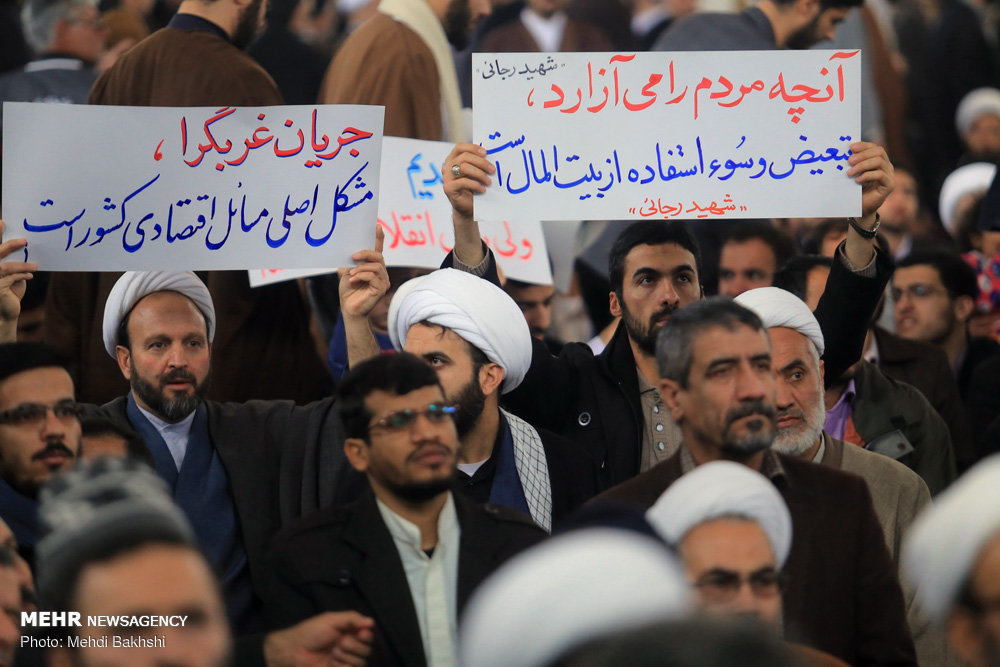 جریان غربگرا،
مشکل اصلی مسائل اقتصادی کشور است
"شهید رجائی"
آنچه مردم را می آزارد،
تبعیض و سُوء استفاده از بیت المال است
"شهید رجائی"
ولی انقلا
MEHR NEWSAGENCY
Photo: Mehdi Bakhshi